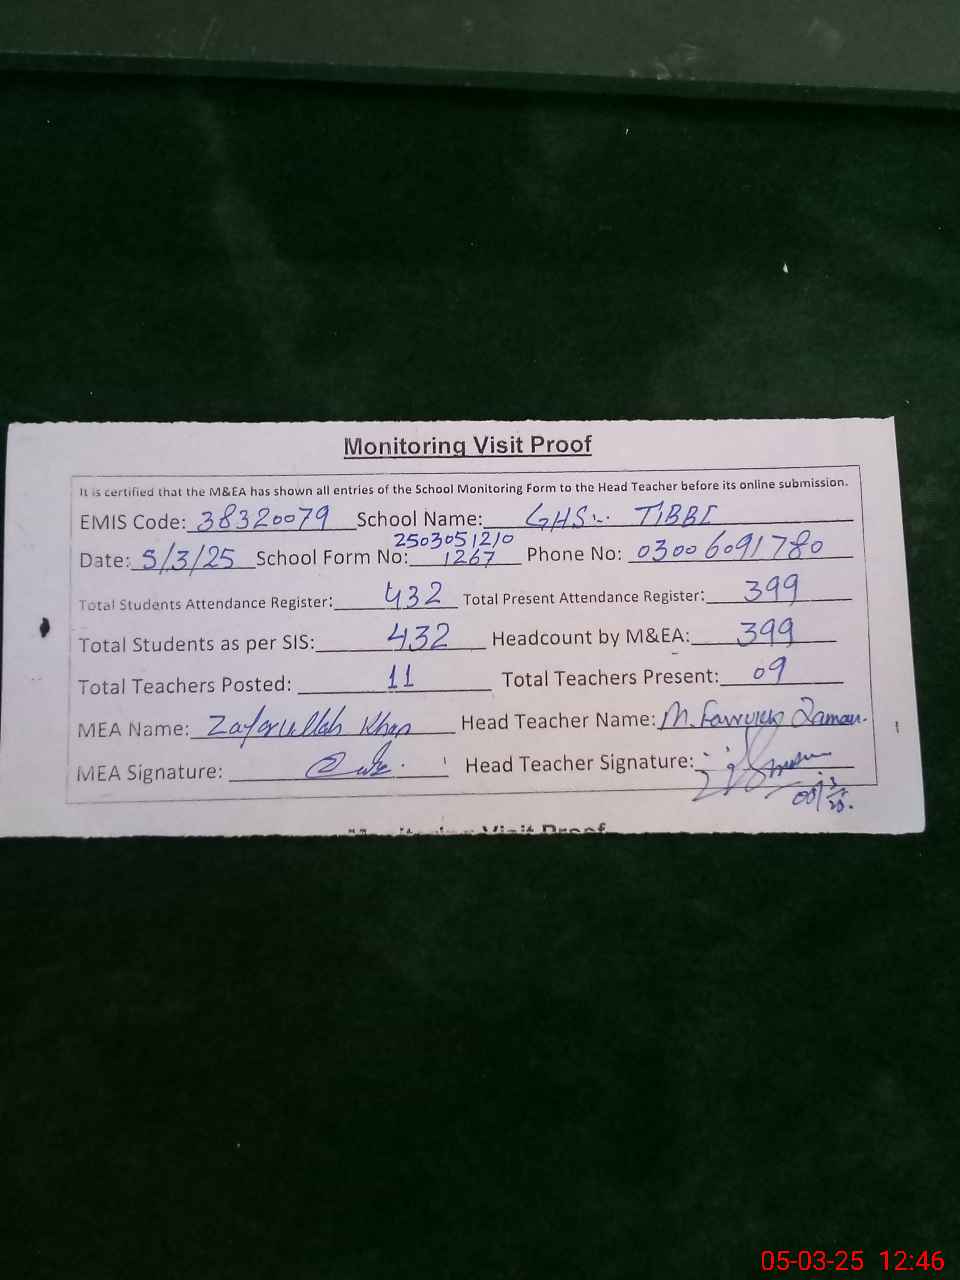 Monitoring Visit Proof
It is certified that the M&EA has shown all entries of the School Monitoring Form to the Head Teacher before its online submission.
EMIS Code: 38320079 School Name: GHS TIBBI
Date: 5/3/25 School Form No: 2503051210 1267 Phone No: 03006091780
Total Students Attendance Register: 432 Total Present Attendance Register: 399
Total Students as per SIS: 432 Headcount by M&EA: 399
Total Teachers Posted: 11 Total Teachers Present: 09
MEA Name: Zaferullah Khan Head Teacher Name: M. Farrukh Zaman.
MEA Signature: Head Teacher Signature:
Monitoring Visit Proof
05-03-25 12:46